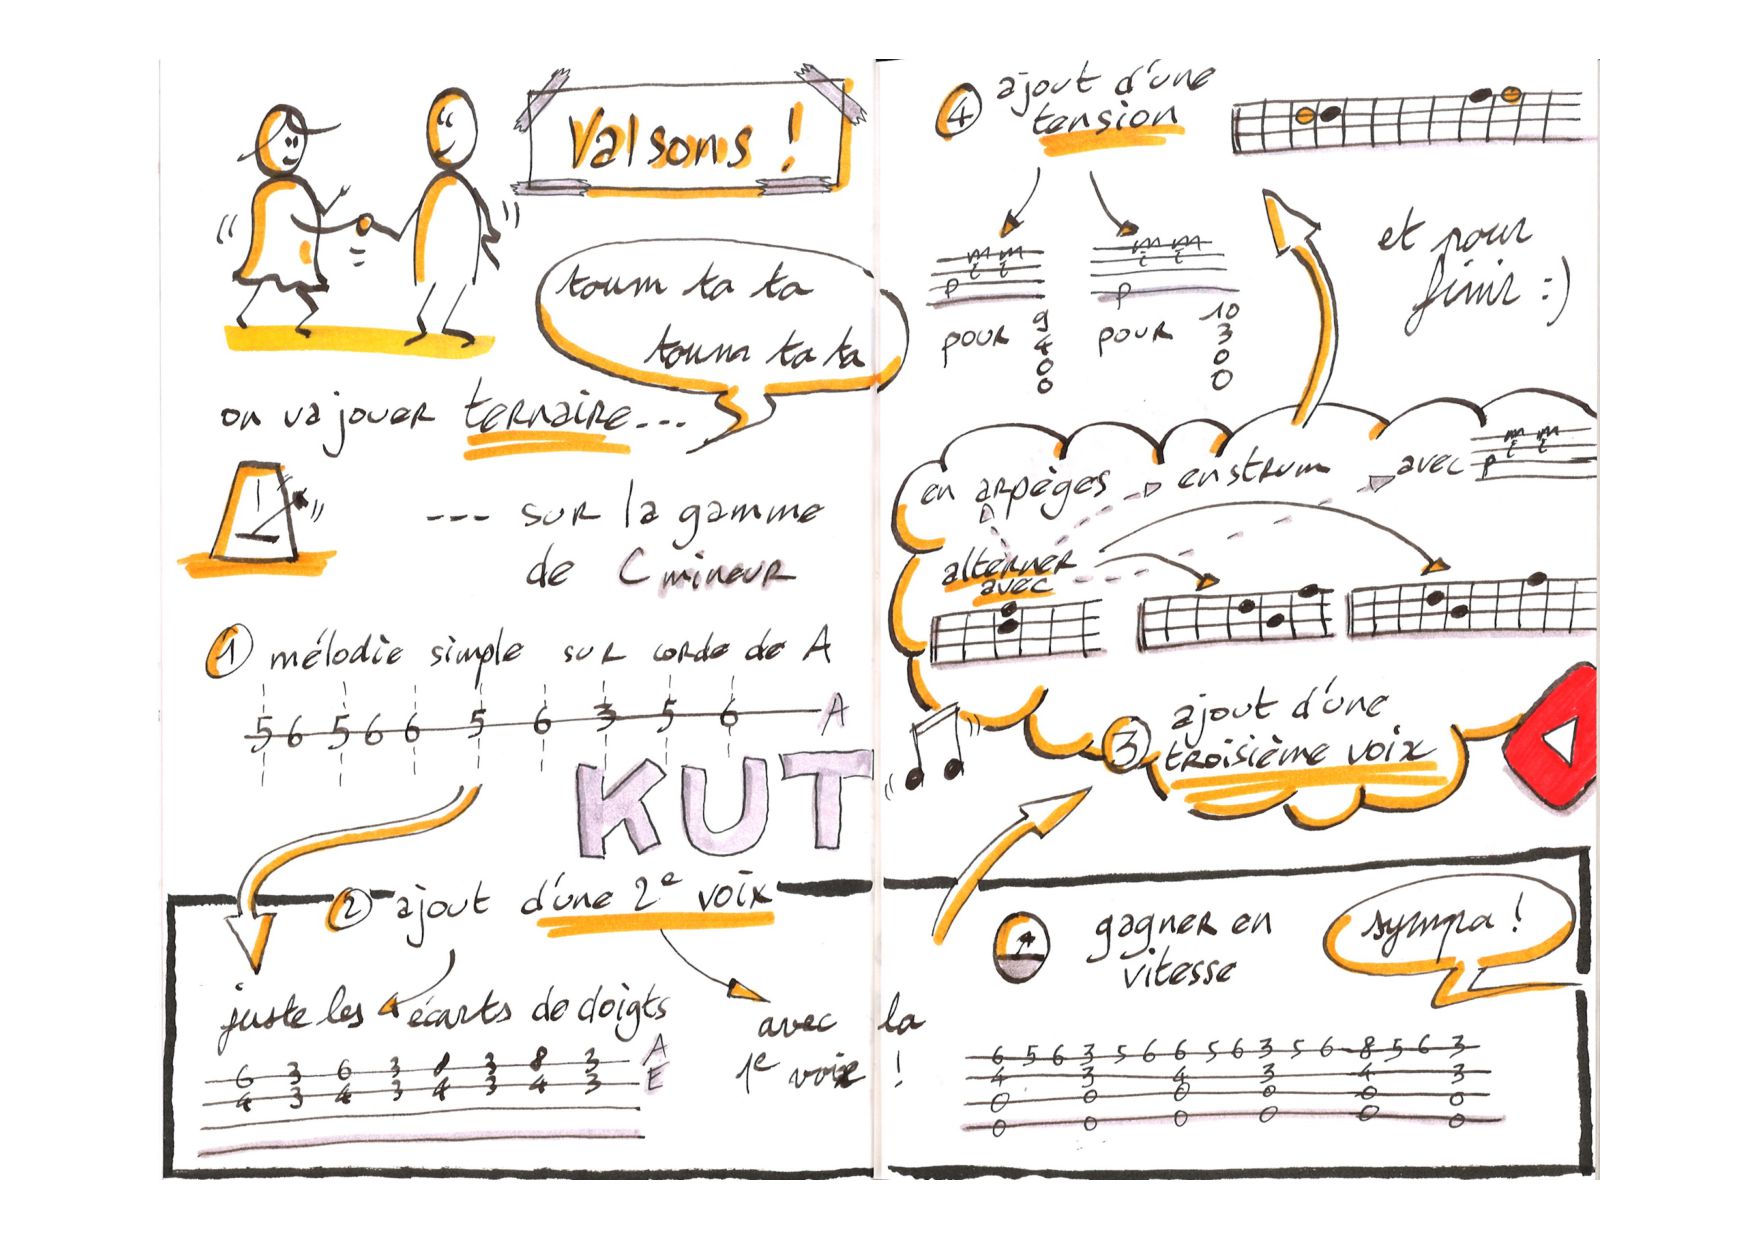 Valsons !
toum ta ta
toum ta ta
on va jouer ternaire---
--- sur la gamme
de C mineur
1 mélodie simple sur corde de A
5 6 5 6 6 5 6 3 5 6 A
KUT
2 ajout d'une 2e voix
juste les écarts de doigts
6 3 6 3 8 3 8 3 A
4 3 4 3 4 3 4 3 E
avec la
1e voix !
3 ajout d'une
troisième voix
alterner
avec
en arpèges
en strum
avec
m m
i i
p
4 ajout d'une
tension
m m
i i
p
pour
9
4
0
0
m m
i i
p
pour
10
3
0
0
et pour
finir :)
gagner en
vitesse
sympa !
6 5 6 3 5 6 6 5 6 3 5 6 8 5 6 3
4 3 4 3 4 3
0 0 0 0 0 0
0 0 0 0 0 0